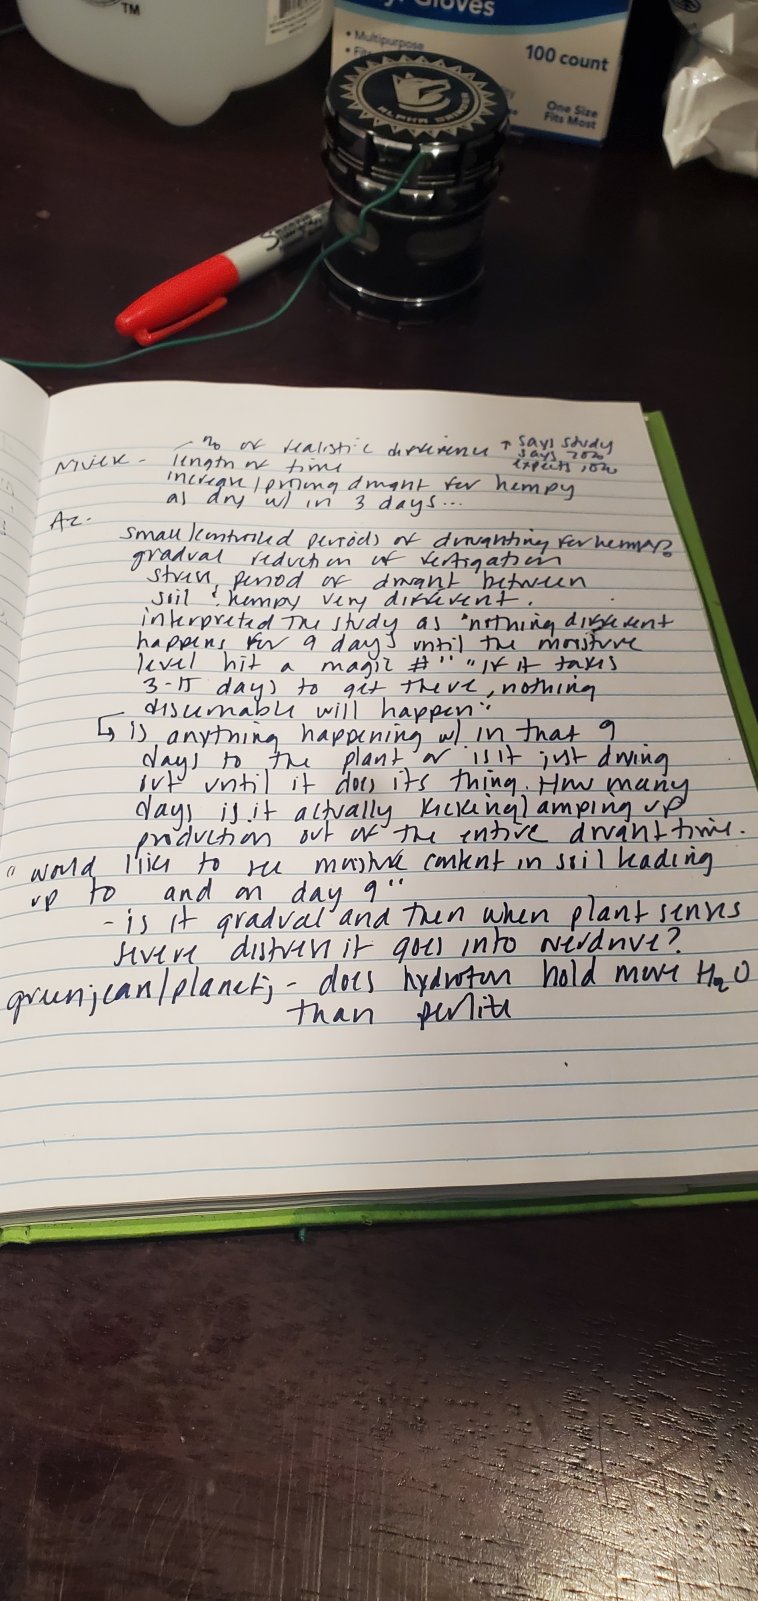 TM
Gloves
• Multipurpose
• Fits
100 count
One Size
Fits Most
ALPHA GRINDER
Sharpie
- % of realistic difference ↑ says study
says 20%
expects 10%
length of time
increase/prolong drought for hempy
as dry w/in 3 days...
Az-
small/controlled periods of droughting for hempy?
gradual reduction of fertigation
stress, period of drought between
soil & hempy very different.
interpreted the study as "nothing different
happens for 9 days until the moisture
level hit a magic #" "If it takes
3-15 days to get there, nothing
discernable will happen"
↳ is anything happening w/in that 9
days to the plant or is it just drying
out until it does its thing. How many
days is it actually kicking/amping up
production out of the entire drought time.
"would like to see moisture content in soil leading
up to and on day 9"
- is it gradual and then when plant senses
severe distress it goes into overdrive?
greenjean/planetj - does hydroton hold more H2O
than perlite